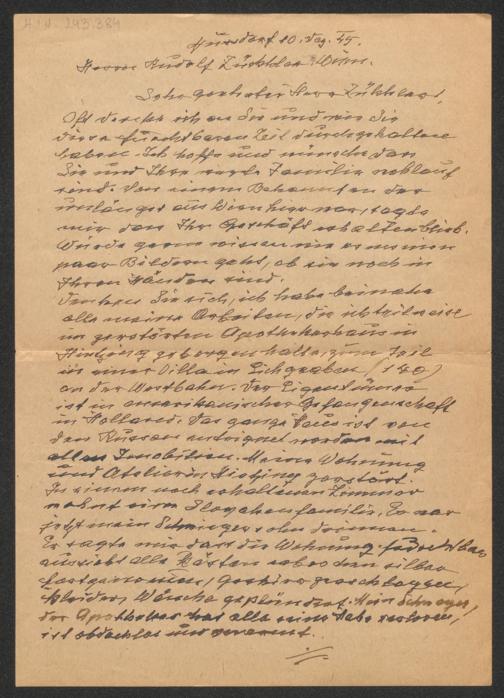 H.I.N. 243.384
10. Dez. 45.
Herrn Rudolf Wien.
Sehr geehrter Herr
Oft denke ich an Sie und wie Sie
diese furchtbaren Zeit durchgehalten
haben. Ich hoffe und wünsche dass
Sie und Ihre werte Familie wohlauf
sind. Von einem Bekannten der
unlängst aus Wien hier war, sagte
mir dass Ihr Geschäft erhalten blieb.
Würde gerne wissen wie es meinen
paar Bildern geht, ob sie noch in
Ihren Händen sind.
Denken Sie sich, ich habe beinahe
alle meine Arbeiten, die ich teilweise
im zerstörten Apothekerhaus in
Hietzing geborgen hatte, zum Teil
in einer Villa in Eichgraben (140)
an der Westbahn. Der Eigentümer
ist in amerikanischer Gefangenschaft
in Holland. Das ganze Haus ist von
den Russen worden mit
allen Meine Wohnung
und Atelier in Hietzing zerstört.
In einem noch erhaltenen Zimmer
wohnt eine Familie. Es war
jetzt mein Schwiegersohn drinnen.
Er sagte mir dass die Wohnung furchtbar
aussieht alle Kästen
Geschirr zerschlagen,
Kleider, Wäsche geplündert. Mein
der Apotheker hat alle seine Habe verloren,
ist obdachlos und verarmt.